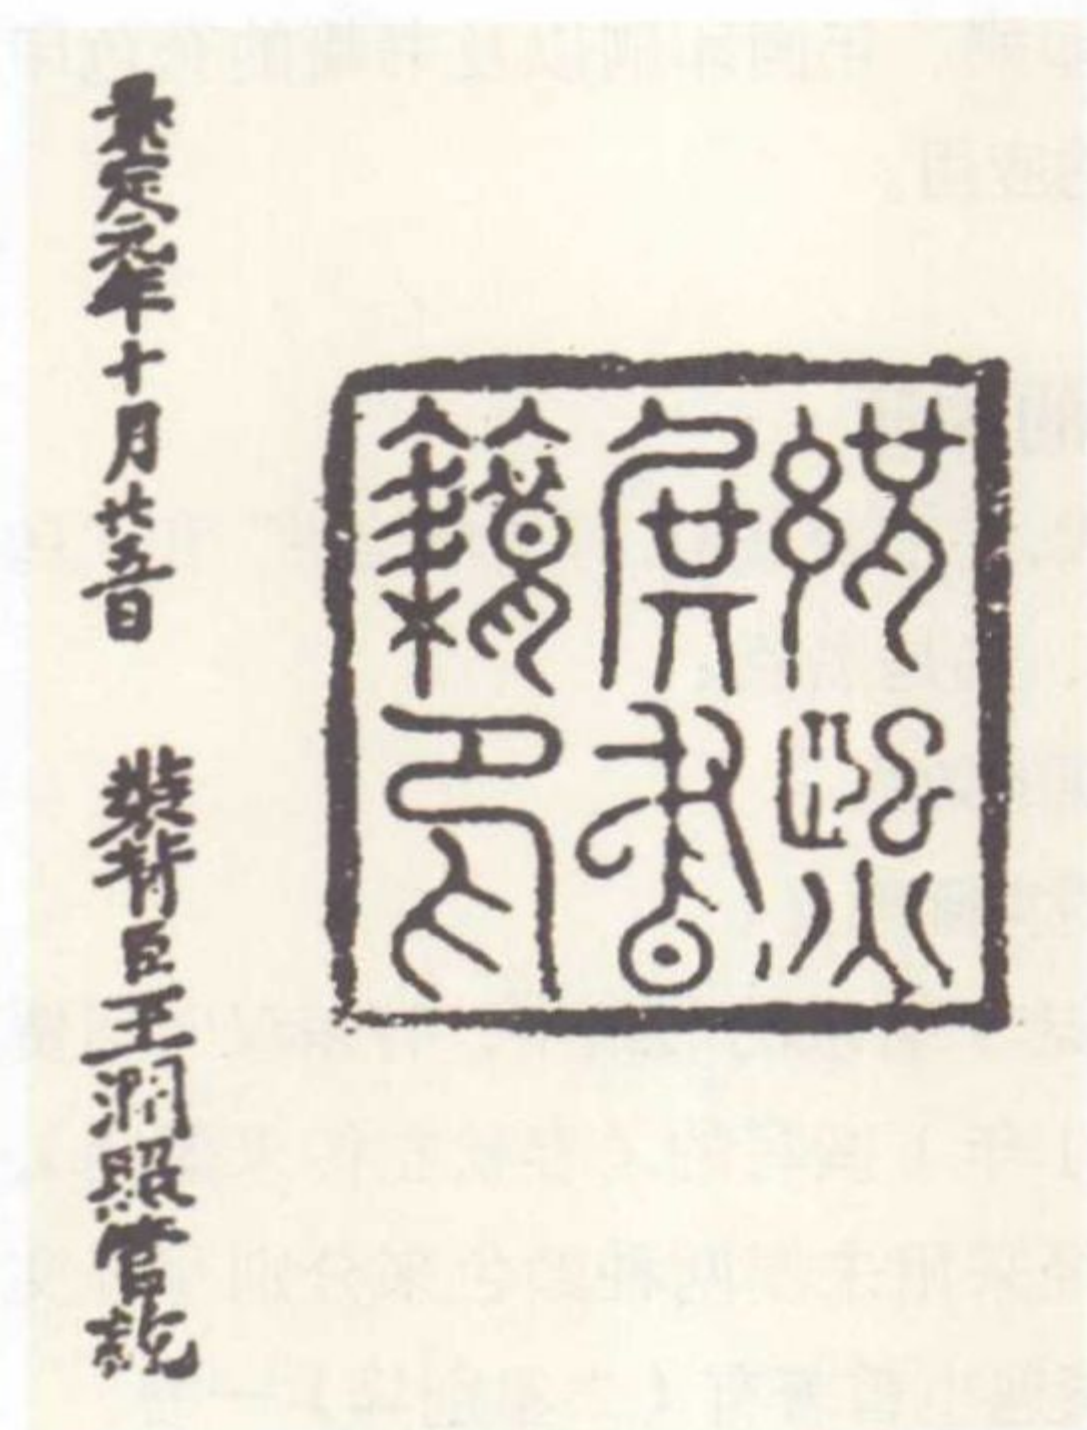 緝熙
殿書
籍印
景定元年十月廿五日　裝背臣王潤照管訖